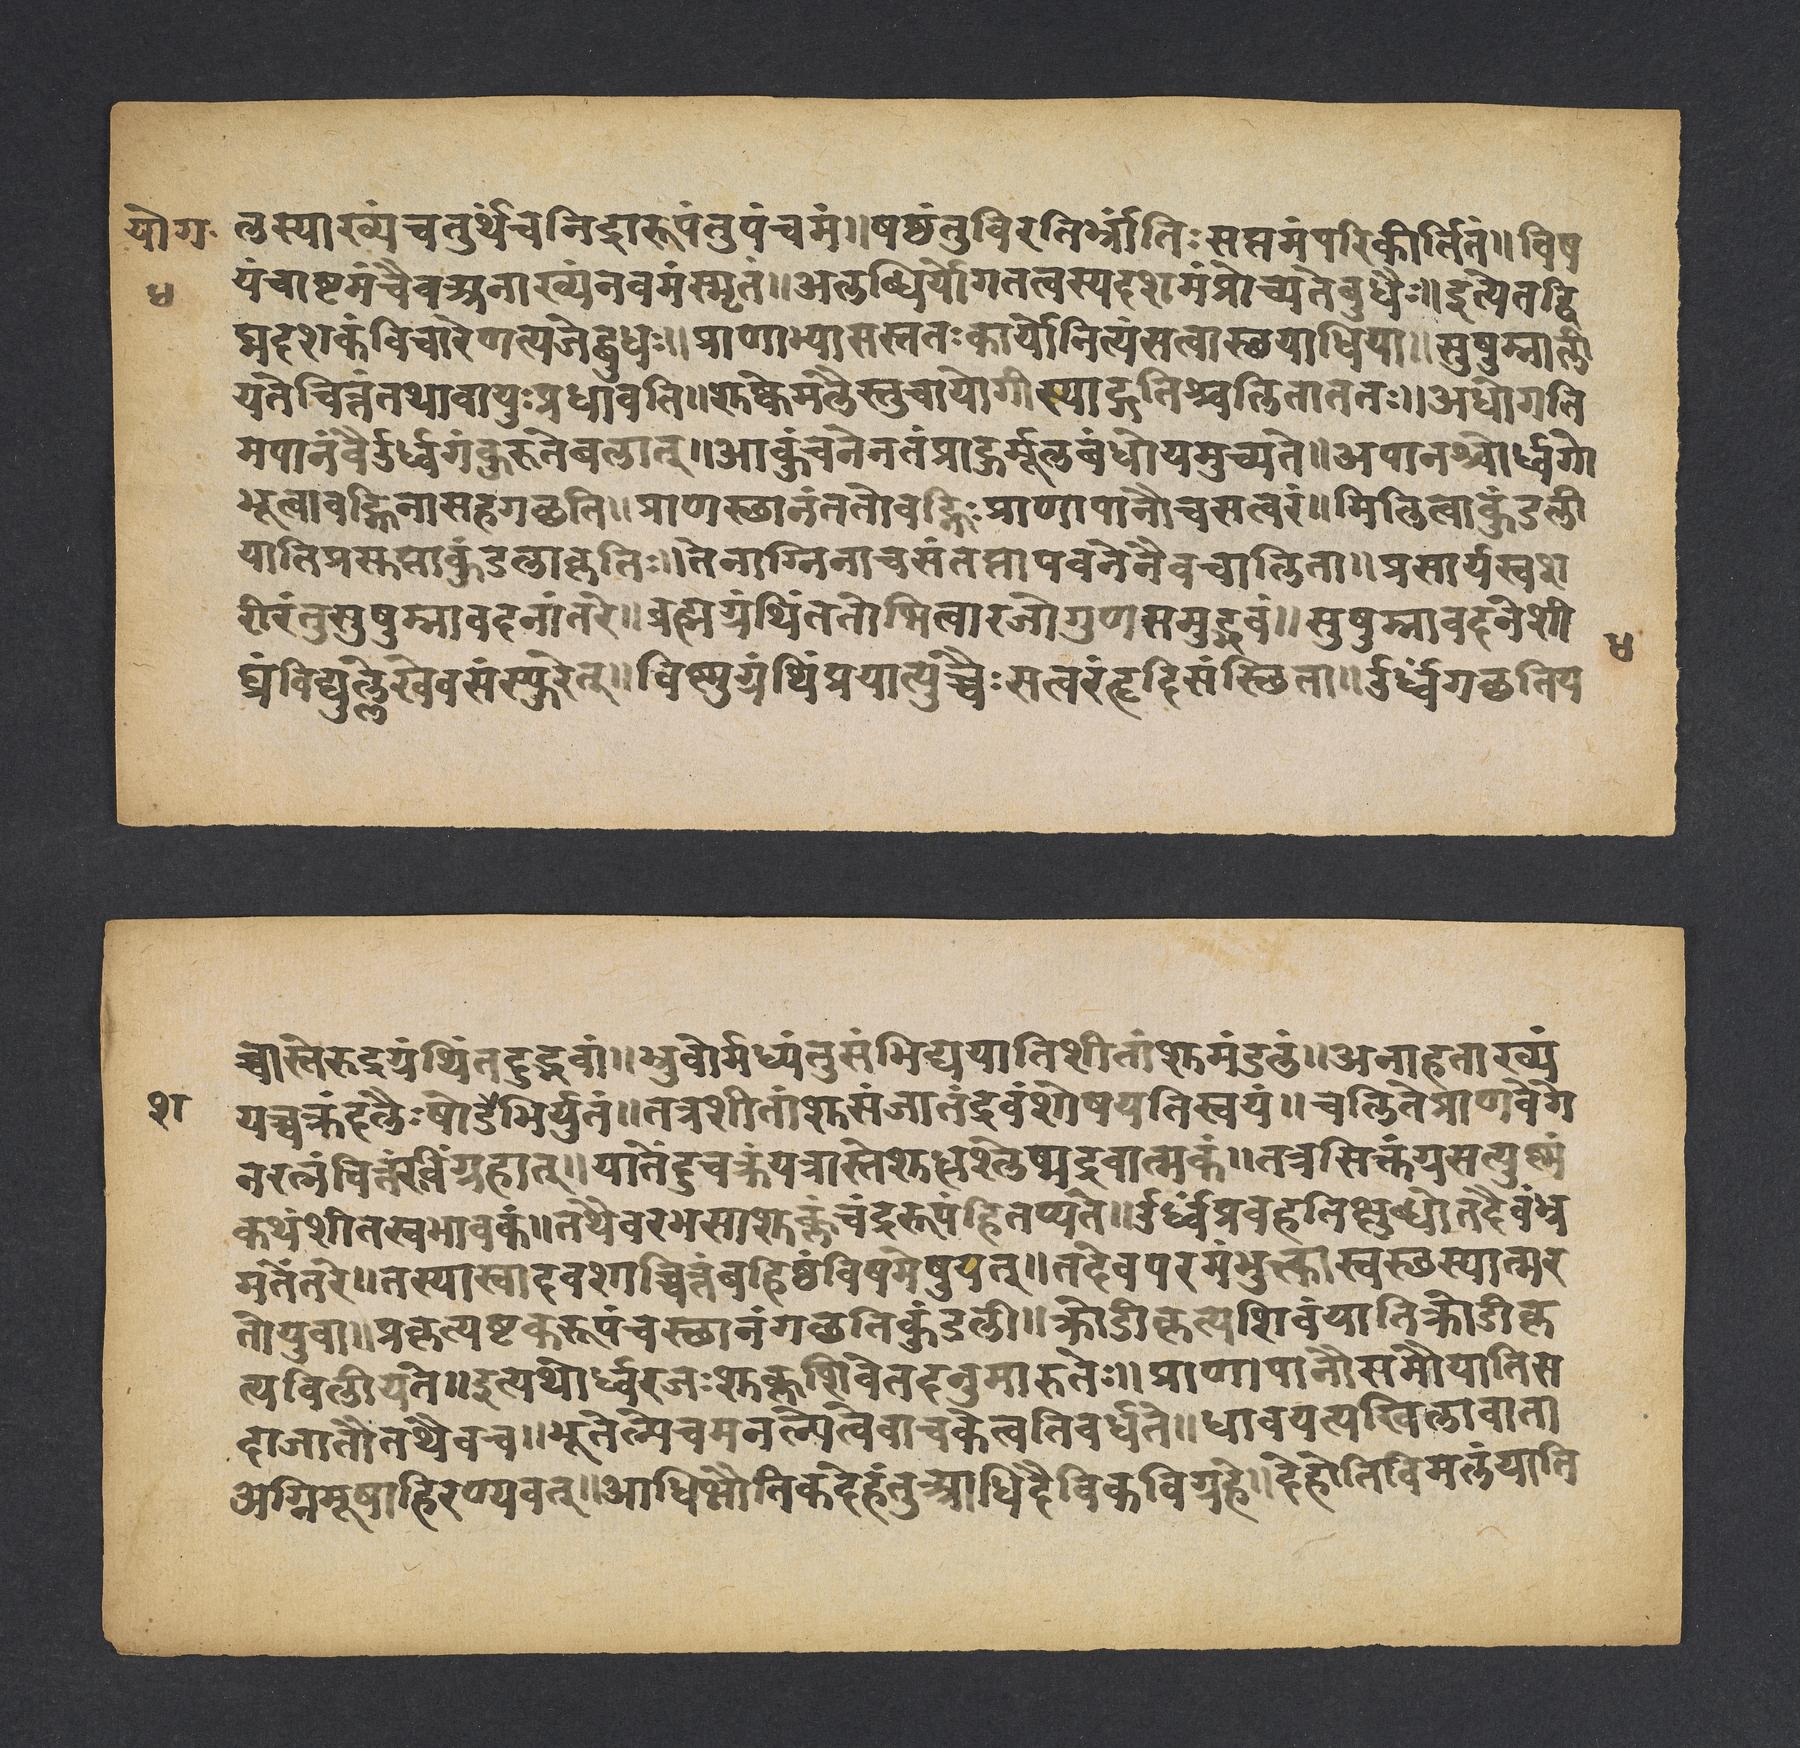 योग॰
४
लस्याख्यंचतुर्थंचनिद्रारूपंतुपंचमं॥षष्ठंतुविरतिर्भ्रांतिःसप्तमंपरिकीर्तितं॥विष
यंचाष्टमंचैवअनाख्यंनवमंस्मृतं॥अलब्धिर्योगतत्वस्यदशमंप्रोच्यतेबुधैः॥इत्येतद्वि
घ्नदशकंविचारेणत्यजेद्बुधः॥प्राणाभ्यासस्ततःकार्योनित्यंसत्वास्छयाधिया॥सुषुम्नाली
यतेचित्तंतथावायुःप्रधावति॥शुष्केमलैस्तुचायोगीस्याद्गतिश्चलितातततः॥अधोगति
मपानंवैर्उर्ध्वगंकुरुतेबलात्॥आकुंचनेनतंप्राहुर्मूलबंधोयमुच्यते॥अपानश्चोर्ध्वगो
भूत्वावह्निनासहगछति॥प्राणस्छानंततोवह्निःप्राणापानौचसत्वरं॥मिलित्वाकुंडली
यातिप्रसुप्ताकुंडलाकृतिः॥तेनाग्निनाचसंतप्तापवनेनैवचालिता॥प्रसार्यस्वश
रीरंतुसुषुम्नावदनांतरे॥ब्रह्मग्रंथिंततोभित्वारजोगुणसमुद्भवं॥सुषुम्नावदनेशी
घ्रंविद्युल्लेखेवसंस्फुरेत्॥विष्णुग्रंथिंप्रयात्युच्चैःसत्वरंहृदिसंस्छिता॥र्उर्ध्वंगछतिय
४
च्चास्तेरुद्रग्रंथिंतदुद्भवां॥भ्रुवोर्मध्यंतुसंभिद्ययातिशीतांशुमंडलं॥अनाहताख्यं
शा
यच्चक्रंदलैःषोडेभिर्युतं॥तत्रशीतांशुसंजातंद्रवंशोषयतिस्वयं॥चलितेप्राणवेगे
नरक्तंपित्तंरविंग्रहात्॥यातेंदुचक्रंयत्रास्तेशुद्धश्लेष्मद्रवात्मकं॥तत्रसिक्तंग्रसत्युष्णं
कथंशीतस्वभावकं॥तथैवरभसाशुक्लंचंद्ररूपंहितप्यते॥र्उर्ध्वंप्रवहतिक्षुब्धोतदैवंभ्र
मतेंतरे॥तस्यास्वादवशाच्चित्तंबहिष्ठंविषमेषुयत्॥तदेवपरमंभुक्त्कास्वस्छस्यात्मर
तोयुवा॥प्रकृत्यष्टकरूपंचस्छानंगछतिकुंडली॥क्रोडीकृत्यशिवंयातिक्रोडीकृ
त्यविलीयते॥इत्यथोर्ध्वरजःशुक्लशिवेतदनुमारुतेः॥प्राणापानौसमौयातिस
दाजातौतथैवच॥भूतेल्पेचमनल्पेत्वेवाचकेत्वतिवर्धते॥धावयत्यखिलावाता
अग्निमूषाहिरण्यवत्॥आधिभौतिकदेहंतुआधिदैविकविग्रहे॥देहोतिविमलंयाति